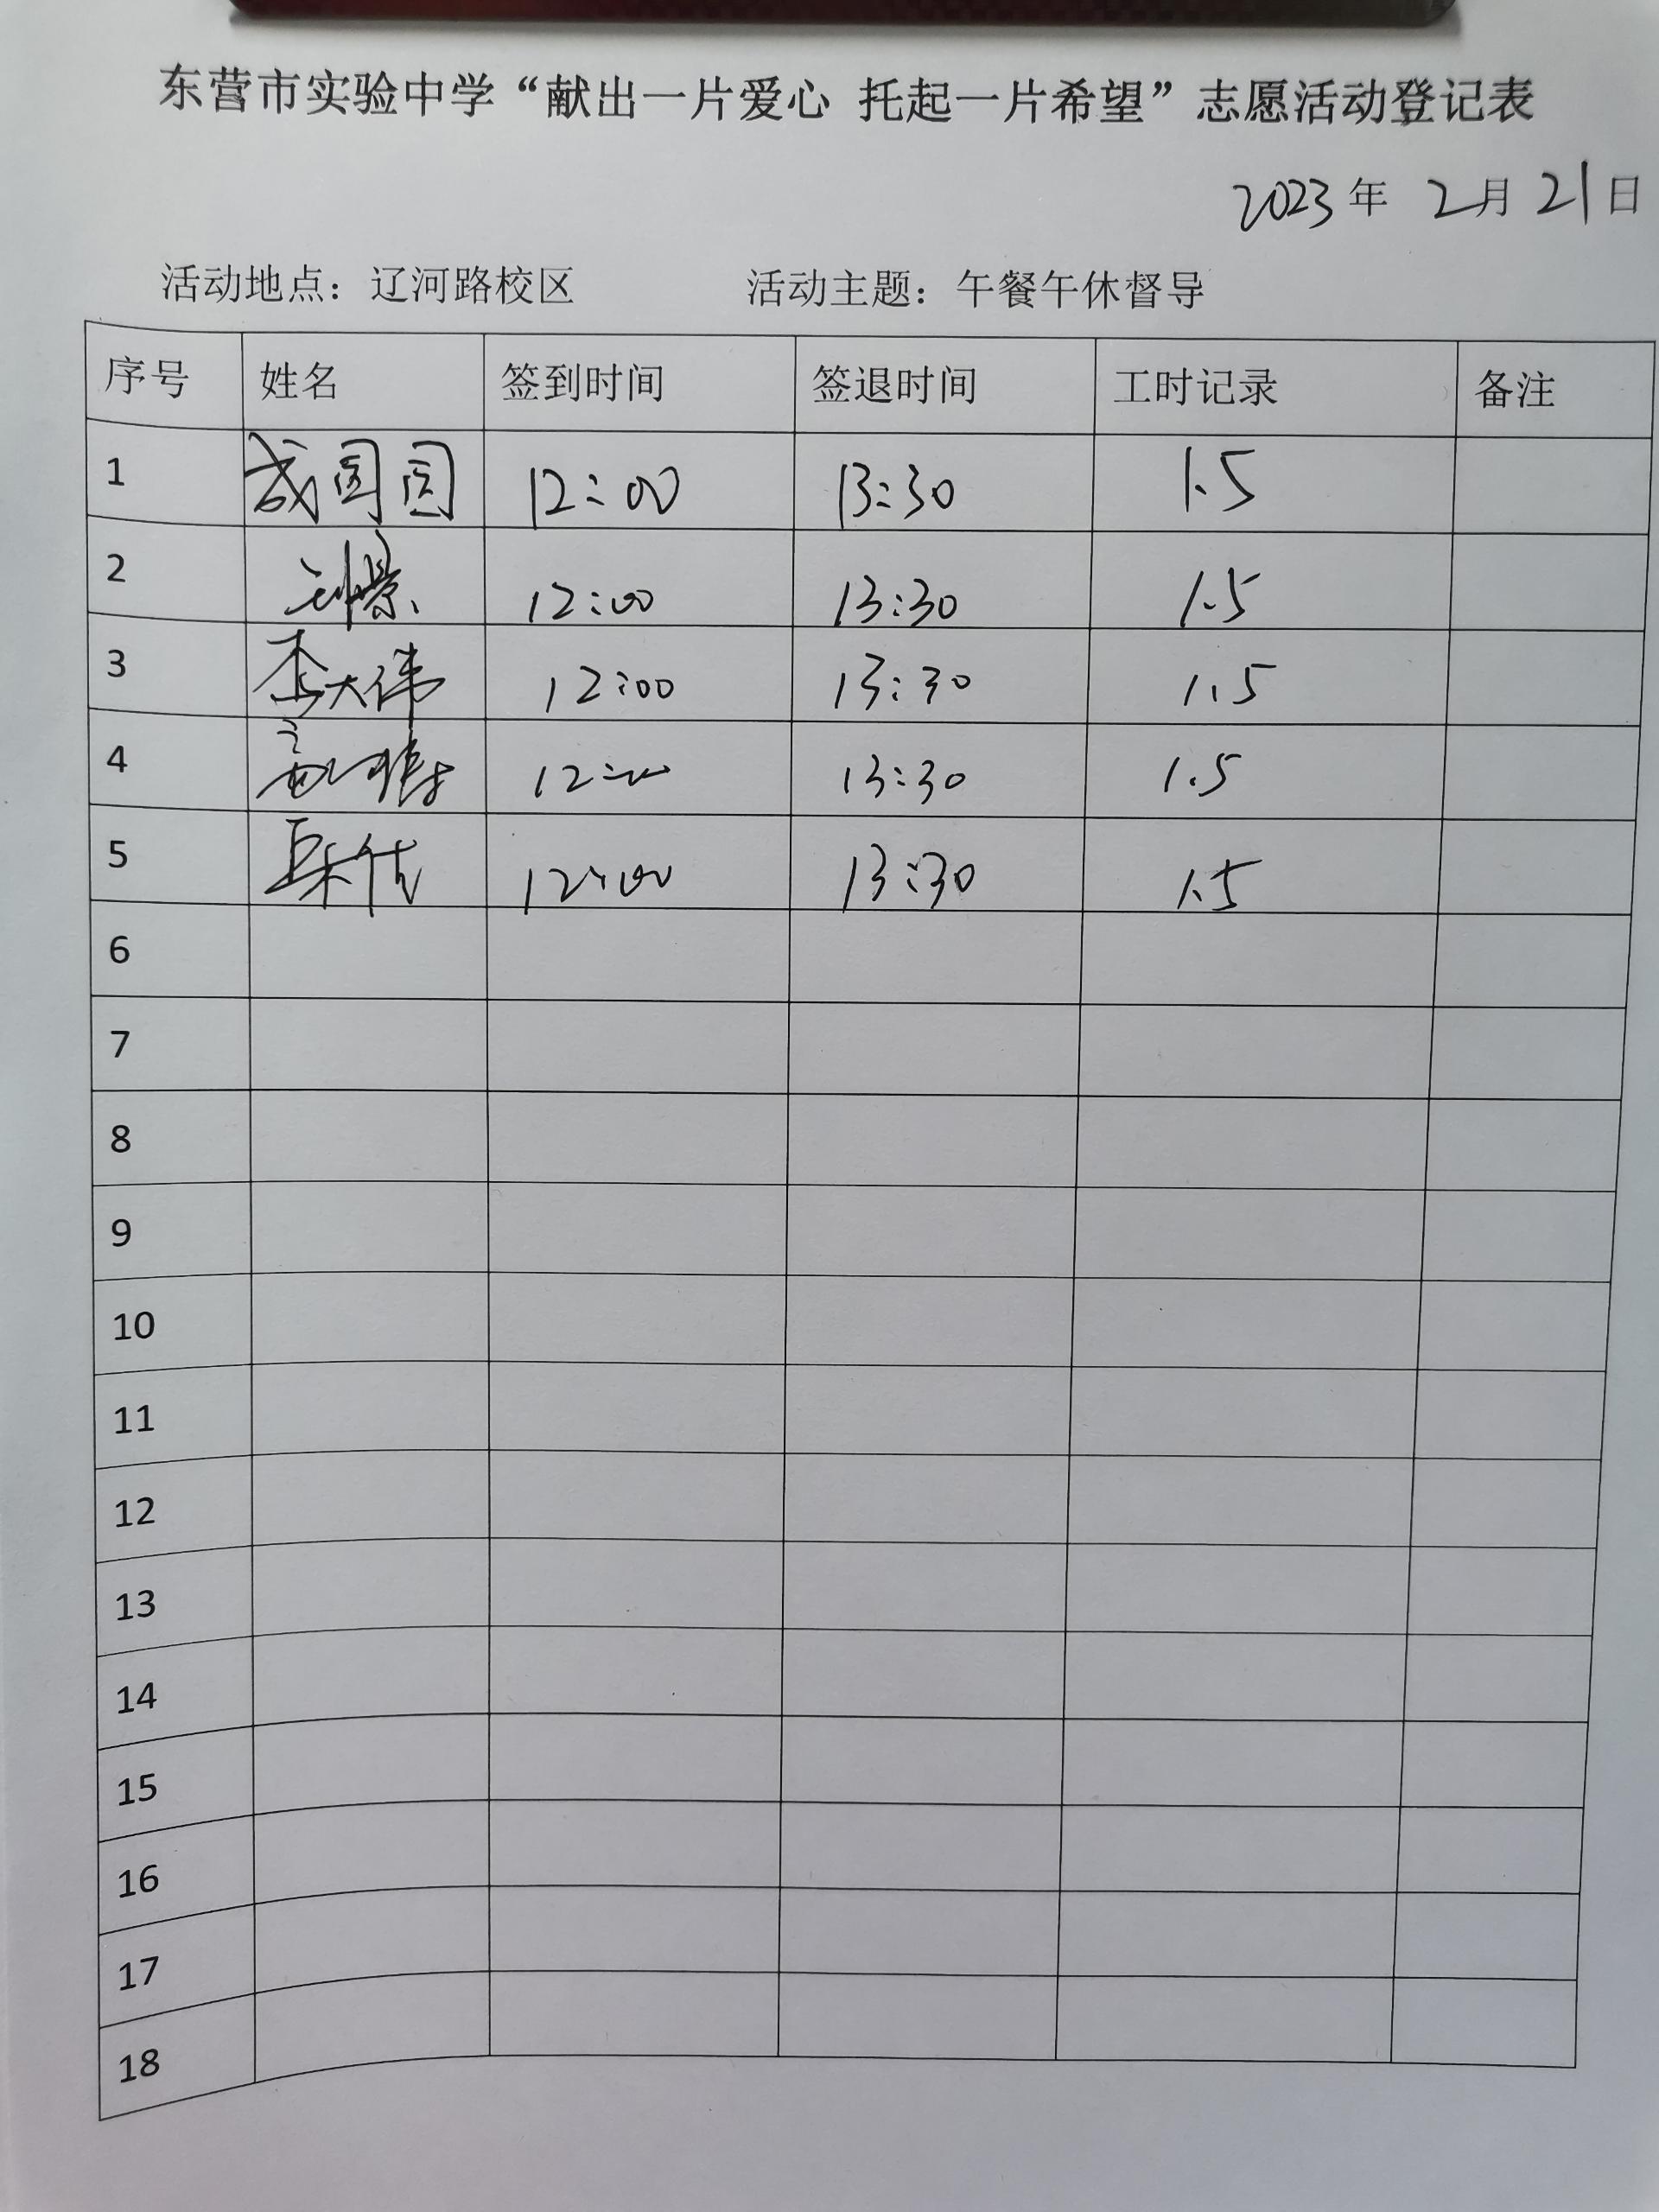 东营市实验中学“献出一片爱心 托起一片希望”志愿活动登记表
2023年 2月21日
活动地点：辽河路校区 活动主题：午餐午休督导
序号 姓名 签到时间 签退时间 工时记录 备注
1 圆圆 12:00 13:30 1.5
2 12:00 13:30 1.5
3 李大伟 12:00 13:30 1.5
4 12:00 13:30 1.5
5 12:00 13:30 1.5
6
7
8
9
10
11
12
13
14
15
16
17
18